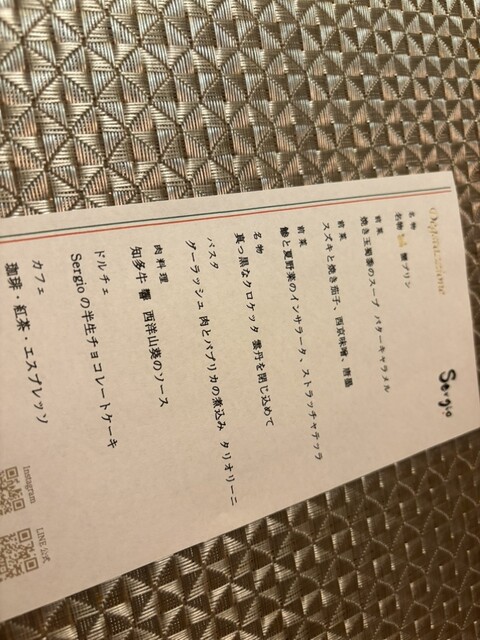 Sergio
名物
前菜
焼き玉蜀黍のスープ バターキャラメル
前菜
スズキと焼き茄子、西京味噌、唐墨
前菜
鮎と夏野菜のインサラータ、ストラッチャテッラ
名物
真っ黒なクロケッタ 雲丹を閉じ込めて
パスタ
グーラッシュ 肉とパプリカの煮込み タリオリーニ
肉料理
知多牛 響 西洋山葵のソース
ドルチェ
Sergioの半生チョコレートケーキ
カフェ
珈琲・紅茶・エスプレッソ
Instagram
LINE公式